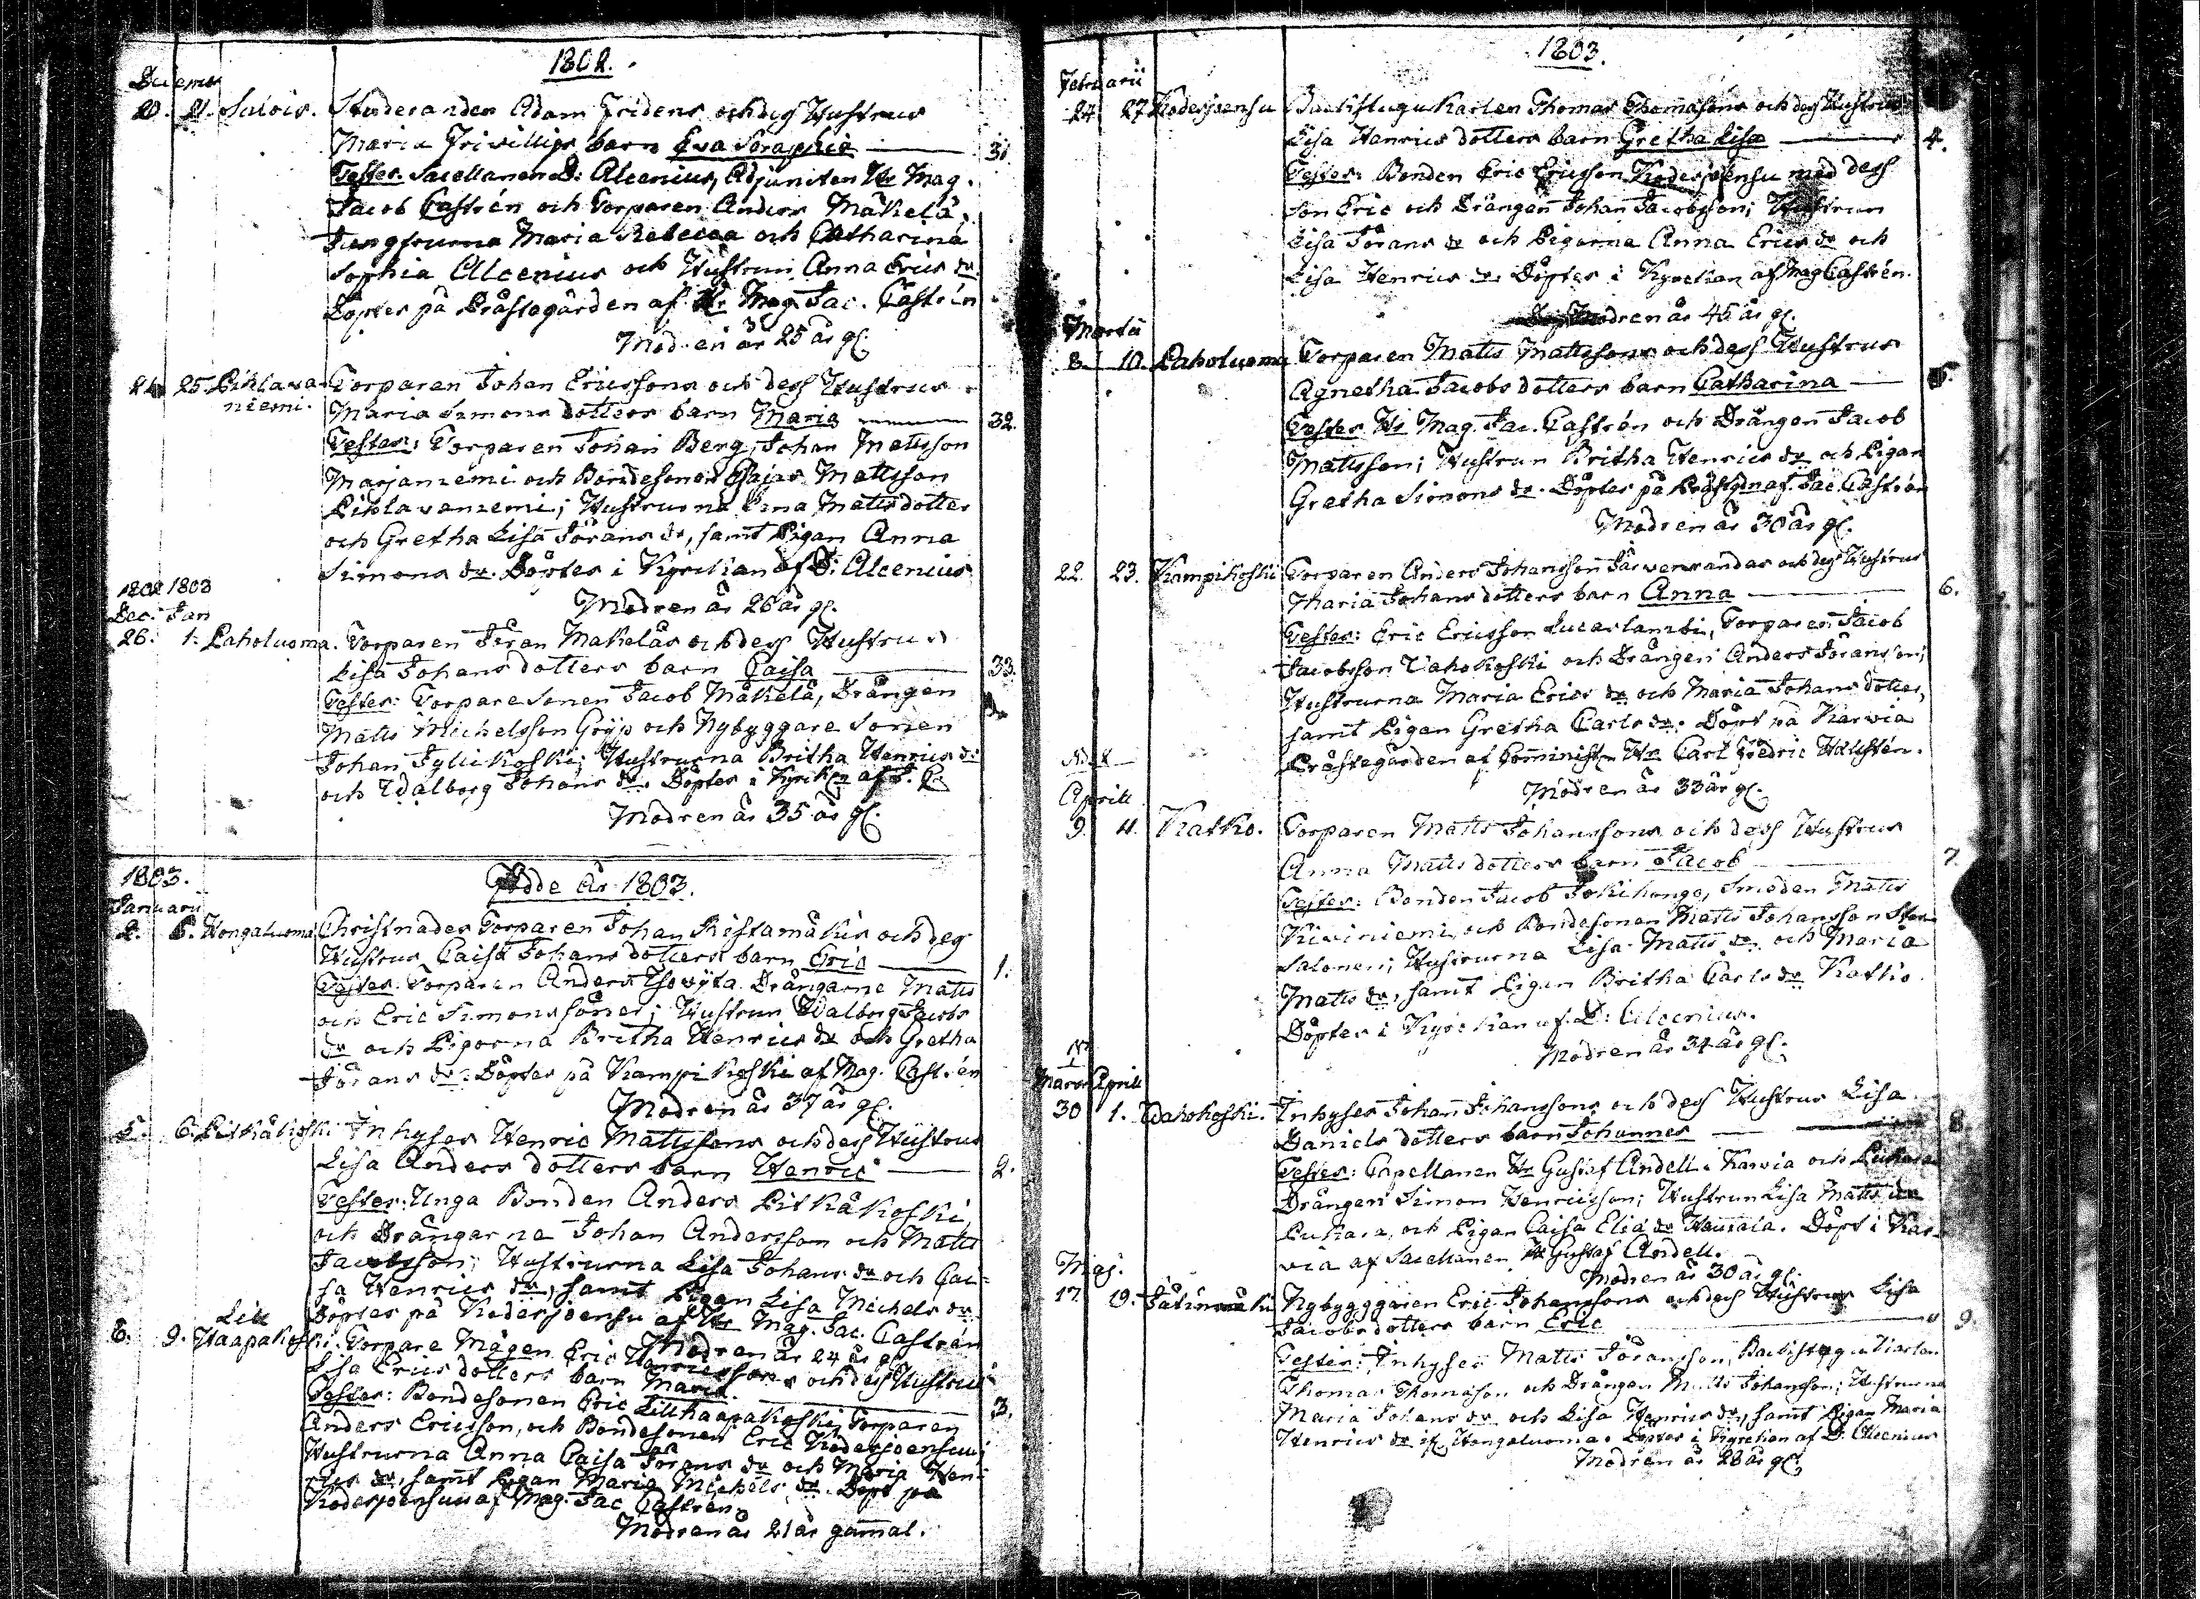 1802.
December
20. 21. Salois. Studeranden Adam Fridens och dess Hustrus
Maria Frivilligs barn Eva Soraphia 31
Testes. Sacellanen D: Alcenius, Adjuncten Hr Mag.
Jacob Castrén och Torparen Anders Mäkelä,
Jungfrurna Maria Rebecca och Catharina
Sophia Alcenius och Hustrun Anna Erics dr
Döptes på Prästegården af Hr Mag. Jac. Castrén
Modren är 25 år gl.
24 25. Pihlava- Torparen Johan Ericssons och dess Hustrus
niemi. Maria Simons dotters barn Maria 32.
Testes: Torparen Johan Berg, Johan Mattsson
Marjanemi och Bondesonen Esaias Mattsson
Pihlavaniemi; Hustrurna Mattsdotter
och Gretha Lisa Jörans dr, samt Pigan Anna
Simons dr. Döptes i Kyrckan af D: Alcenius
Modren är 26 år gl.
1802 1803
Dec. Jan
26. 1. Paholuoma. Torparen Jöran Mäkeläs och dess Hustrus
Lisa Johans dotters barn Caisa 33.
Testes: Torparesonen Jacob Mäkelä, Drängen
Matts Michelsson Gryp och Nybyggare Sonen
Johan Jylickoski; Hustrurna Britha Henrics dr
och Walborg Johans dr. Döptes i Kyrkn af J. C.
Modren är 35 år gl.
1803. Födde År 1803.
Januarii
2. 6. Hongaluoma Christnades Torparen Johan Ristamäkis och dess
Hustrus Caisa Johans dotters barn Eric 1.
Testes. Torparen Anders Drängarne Matts
och Eric Simons söner; Hustrun Walborg Jacobs
dr och Pigorna Britha Henrics dr och Gretha
Jörans dr. Döptes på Kampikoski af Mag. Castrén
Modren är 37 år gl.
5. 6. Pitkäkoski Inhyses Henric Mattssons och dess Hustrus
Lisa Anders dotters barn Henric 2.
Testes: Unga Bonden Anders Pitkäkoski
och Drängarne Johan Andersson och Matts
Jacobsson; Hustrurna Lisa Johans dr och Cai-
sa Henrics dr, samt Pigan Lisa Michels dr
Döptes på Kodesjoensu af Hr Mag. Jac. Castrén
Modren är 24 år gl.
Lill
8. 9. Haapakoski. Torpare Mågen Eric Henricssons och dess Hustrus
Lisa Erics dotters barn Maria. 3.
Testes: Bondesonen Eric Lillhaapakoski, Torparen
Anders Ericsson, och Bondesonen Eric Kodesjoensuu;
Hustrurna Anna Caisa Jörans dr och Maria Hen-
rics dr, samt Pigan Maria Michels dr. Döpt på
Kodesjoensuu af Mag. Jac Castrén.
Modren är 21 år gammal.
1803.
Februarii
24. 27. Kodesjoensu Backstugu Karlen Thomas Thomasons och dess Hustrus
Lisa Henrics dotters barn Gretha Lisa 4.
Testes: Bonden Eric Ericsson Kodesjoensu med dess
son Eric och Drängen Johan Jacobsson; Hustrun
Lisa Jörans dr och Pigorna Anna Erics dr och
Lisa Henrics dr. Döptes i Kyrckan af Mag Castrén.
Modren är 45 år gl.
Martii
8. 10. Paholuoma Torparen Matts Mattssons och dess Hustrus
Agnetha Jacobs dotters barn Catharina 5.
Testes Hr Mag. Jac. Castrén och Drängen Jacob
Mattsson; Hustrun Britha Henrics dr och Pigan
Gretha Simons dr. Döptes på Prästgn af Jac Castrén
Modren är 30 år gl.
22. 23. Kampikoski Torparen Anders Johansson Järvenrandas och dess Hustrus
Maria Johans dotters barn Anna 6.
Testes: Eric Ericsson Lucaslambi, Torparen Jacob
Jacobsson Vahokoski och Drängen Anders Jöransson;
Hustrurna Maria Erics dr och Maria Johans dotter,
samt Pigan Gretha Carls dr. Döpt på Karvia
Prästegården af Comministr Hr Carl Fredric Hällstén.
Modren är 33 år gl.
Aprill
9. 11. Katko. Torparen Matts Johanssons och dess Hustrus
Anna Matts dotters barn Jacob 7.
Testes: Bonden Jacob Jokihonga, Smeden Matts
Kiviniemi och Bondesonen Matts Johansson
Salonen; Hustrurna Lisa Matts dr och Maria
Matts dr, samt Pigan Britha Carls dr Katko.
Döptes i Kyrckan af D: Alcenius.
Modren är 34 år gl.
Mars Aprill
30 1. Wahokoski. Inhyses Johan Johanssons och dess Hustrus Lisa
Daniels dotters barn Johannes 8.
Testes: Capellanen Hr Gustaf Andell i Karvia och
Drängen Simon Henricsson; Hustrun Lisa Matts dr
Pukara, och Pigan Caisa Elia dr Döpt i Kar-
via af Sacellanen Hr Gustaf Andell.
Modren är 30 år gl.
Maj.
17. 19. Nybyggaren Eric Johanssons och dess Hustrus Lisa
Jacobs dotters barn Eric 9.
Testes: Inhyses Matts Jöransson, Backstugu Karlen
Thomas Thomason och Drängen Matts Johansson; Hustrurna
Maria Johans dr och Lisa Henrics dr, samt Pigan Maria
Henrics dr if. Hongaluoma. Döptes i Kyrckan af D. Alcenius
Modren är 28 år gl.